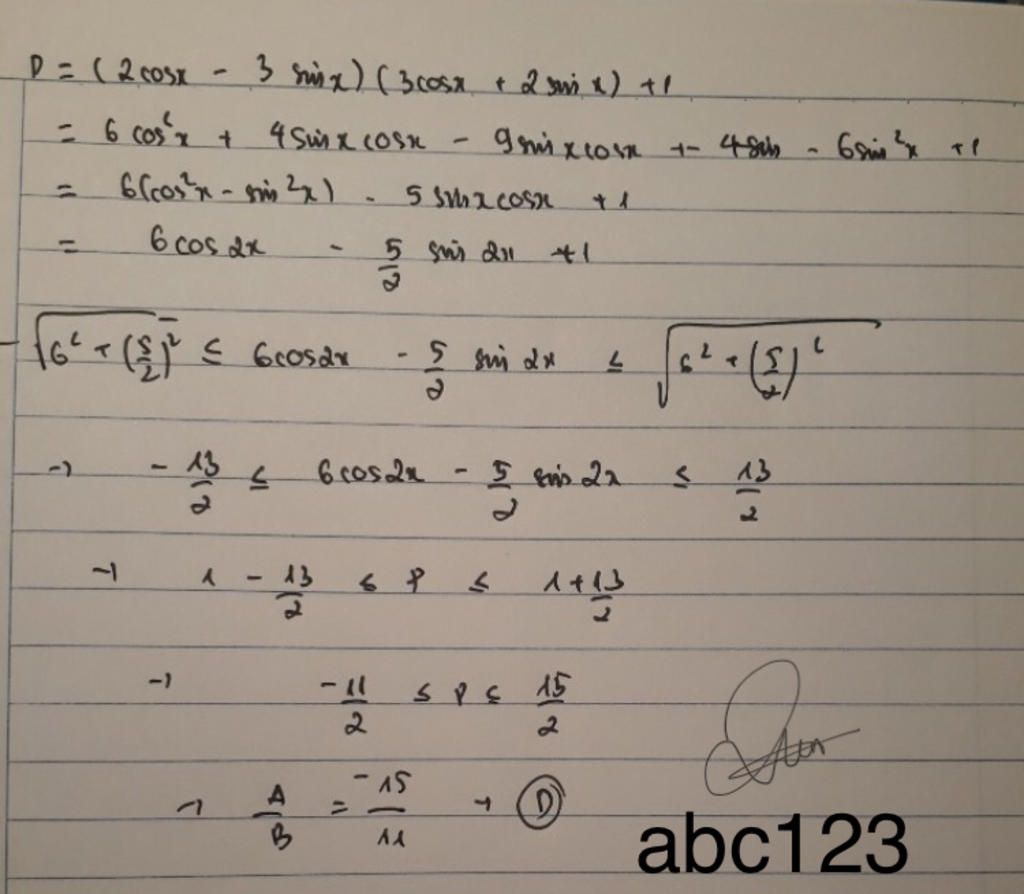 P = (2cosx - 3 sinx)(3cosx + 2 sin x) +1
= 6 cos²x + 4 sinx cosx - 9 sinx cosx +- 4 sin - 6 sin²x +1
= 6(cos²x - sin²x) - 5 sinxcosx +1
= 6 cos 2x - 5/2 sin 2x +1
-√(6² + (5/2)²) ≤ 6cos2x - 5/2 sin 2x ≤ √(6² + (5/2)²)
→ -13/2 ≤ 6cos2x - 5/2 sin 2x ≤ 13/2
→ 1 - 13/2 ≤ P ≤ 1 + 13/2
→ -11/2 ≤ P ≤ 15/2
→ A/B = -15/11 → D
abc123